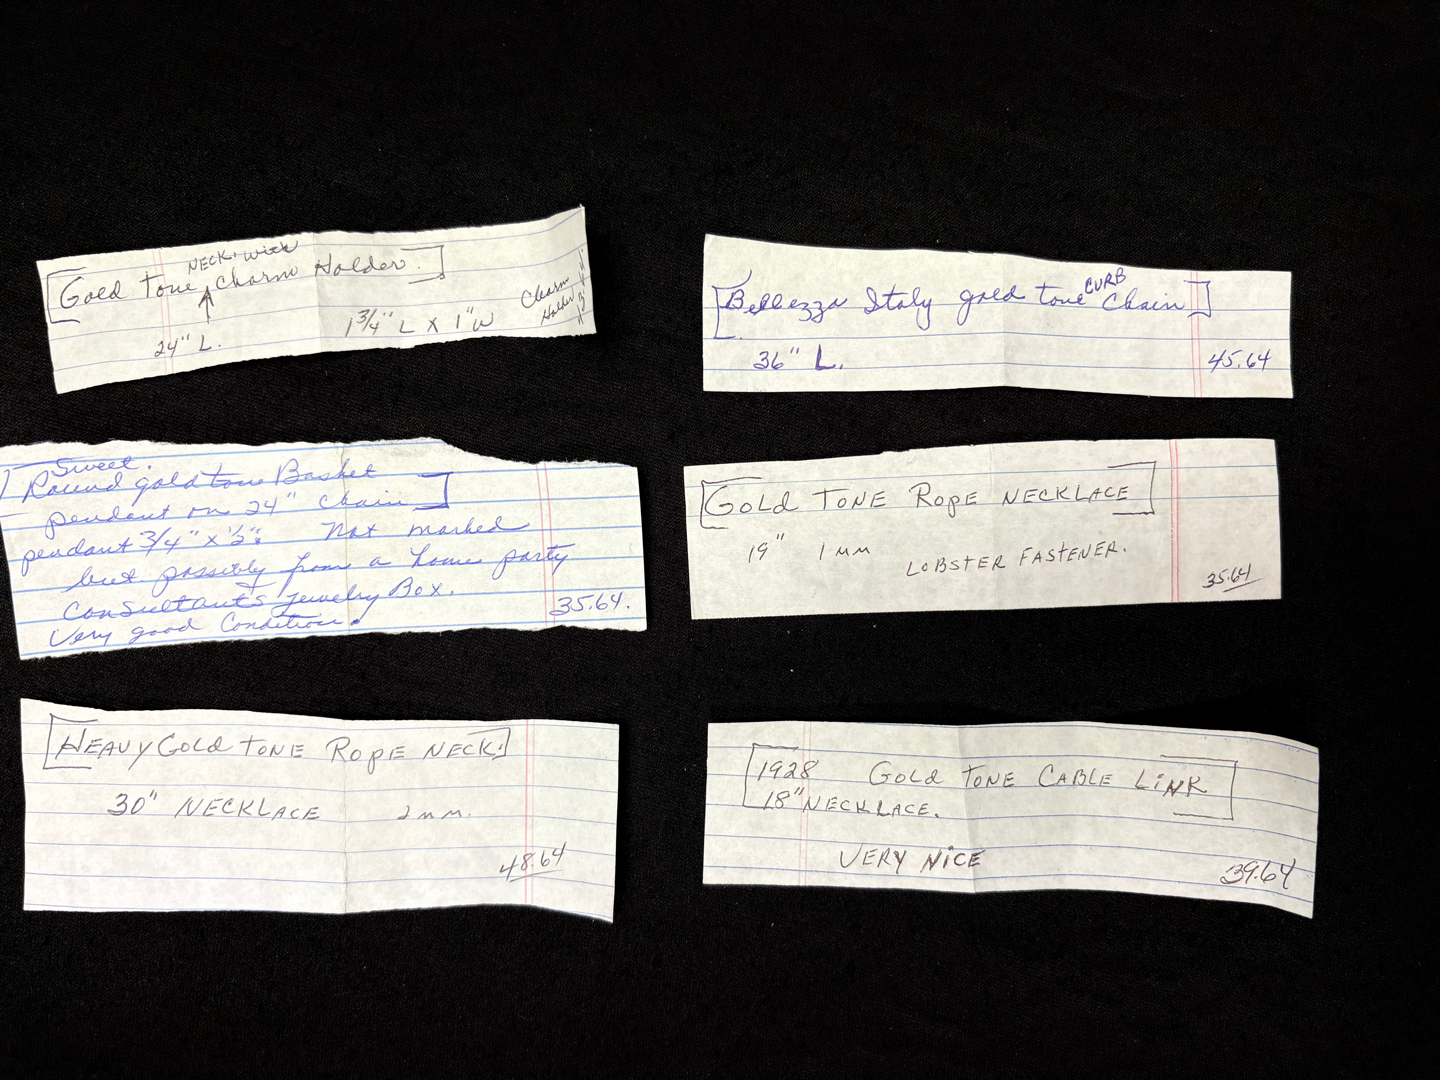 NECK. with
Gold Tone Charm Holder.
24" L. 1 3/4" L X 1" W Charm
Holder
Bellezza Italy gold tone CURB Chain
36" L. 45.64
Sweet.
Round gold tone Basket
pendant on 24" chain
pendant 3/4" x 1/2". Not marked
but possibly from a home party
consultants Jewelry Box.
Very good Condition. 35.64.
GOLD TONE ROPE NECKLACE
19" 1 mm LOBSTER FASTENER.
35.64
HEAVY GOLD TONE ROPE NECK.
30" NECKLACE 2 mm.
48.64
1928 GOLD TONE CABLE LINK
18" NECKLACE.
VERY NICE 39.64